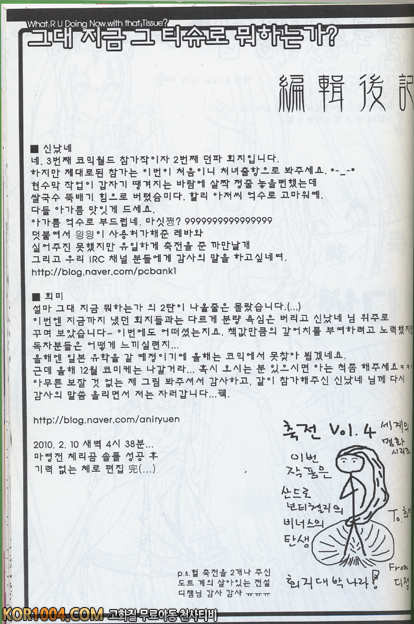 What R U Doing Now with that Tissue?
그대 지금 그 티슈로 뭐하는가?
編輯後記
■ 신났네
네, 3번째 코믹월드 참가작이자 2번째 던파 회지입니다.
하지만 제대로된 참가는 이번이 처음이니 처녀출항으로 봐주세요. *-_-*
현수막 작업이 갑자기 땡겨지는 바람에 살짝 정줄 놓을뻔했는데
쌀국수 뚝배기 힘으로 버텼슴미다. 칼리 아저씨 억수로 고마워예.
다들 아가름 맛있게 드세요.
아가름 억수로 부드럽네. 마싯쪙? 9999999999999999
덧붙여서 잉잉이 사용허가해준 레바와
실어주진 못했지만 유일하게 축전을 준 까만날개
그리고 우리 IRC 채널 분들에게 감사의 말을 하고싶네여.
http://blog.naver.com/pcbank1
■ 희미
설마 그대 지금 뭐하는가 의 2탄이 나올줄은 몰랐습니다.(...)
이번엔 지금까지 냈던 회지들과는 다르게 분량 욕심은 버리고 신났네 님 위주로
꾸며 보았습니다~ 이번에도 어떠셨는지요. 책값만큼의 값어치를 부여하려고 노력했지만
독자분들은 어떻게 느끼실런지...
올해엔 일본 유학을 갈 예정이기에 올해는 코믹에서 못찾아 뵙겠네요.
근데 올해 12월 코미케는 나갈거라... 혹시 오시는 분 있으시면 아는 척좀 해주세요
아무튼 보잘 것 없는 제 그림 봐주셔서 감사하고, 같이 참가해주신 신났네 님께 다시
감사의 말씀 올리면서 저는 자러갑니다...퀙.
http://blog.naver.com/aniryuen
2010. 2. 10 새벽 4시 38분...
마영전 체리곰 솔플 성공 후
기력 없는 체로 편집 完(...)
축전 Vol. 4
세계의
명화
시리즈
이번
작품은
산드로
보티첼리의
비너스의
탄생
To.
From
회지대박나라!
p.s.헐 축전을 2개나 주신
도트 계의 살아있는 전설
디쟁님 감사 감사 ㅠㅠㅠ
KOR1004.COM 고화질 무료야동 천사티비